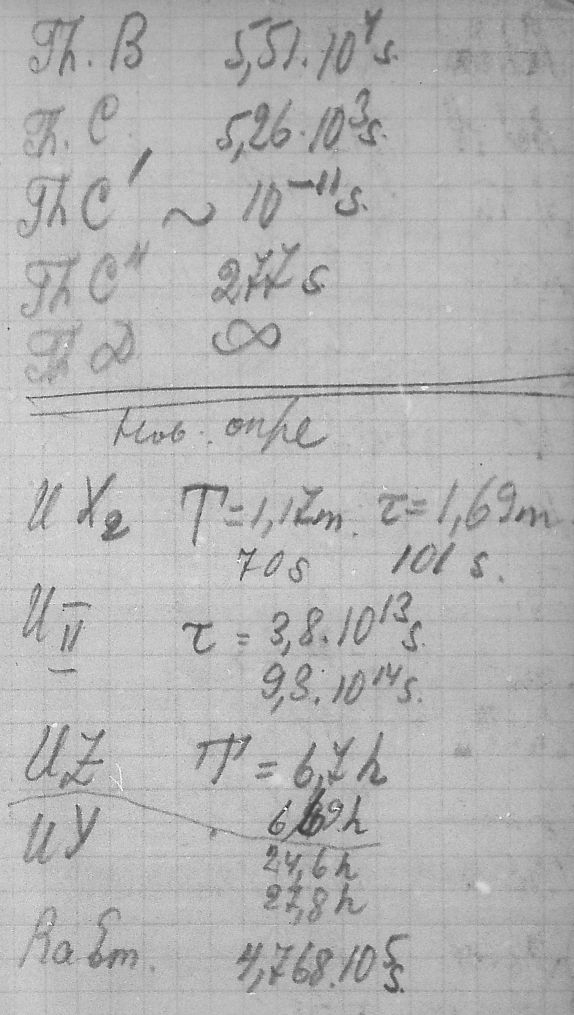 Th. B 5,51.10⁴ s.
Th. C 5,26.10³ s.
Th C′ ~ 10⁻¹¹ s.
Th C″ 277 s
Th D ∞
Нов. опре
U X₂ T = 1,17m. τ = 1,69m
70 s 101 s.
U II τ = 3,8.10¹³ s.
9,3.10¹⁴ s.
UZ T = 6,7 h
6,69 h
UY 24,6 h
27,8 h
Ra Em. 4,768.10⁵ s.